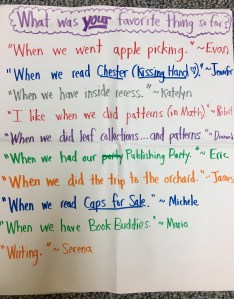 What was your favorite thing so far?
"When we went apple picking." ~Evan
"When we read Chester (Kissing Hand)." ~Jennifer
"When we have inside recess." ~Katelyn
"I like when we did patterns (in Math)." ~Robert
"When we did leaf collections...and patterns"~
"When we had our party Publishing Party." ~ Eric
"When we did the trip to the orchard." ~James
"When we read Caps for Sale." ~ Michele
"When we have Book Buddies." ~ Mario
"Writing." ~ Serena